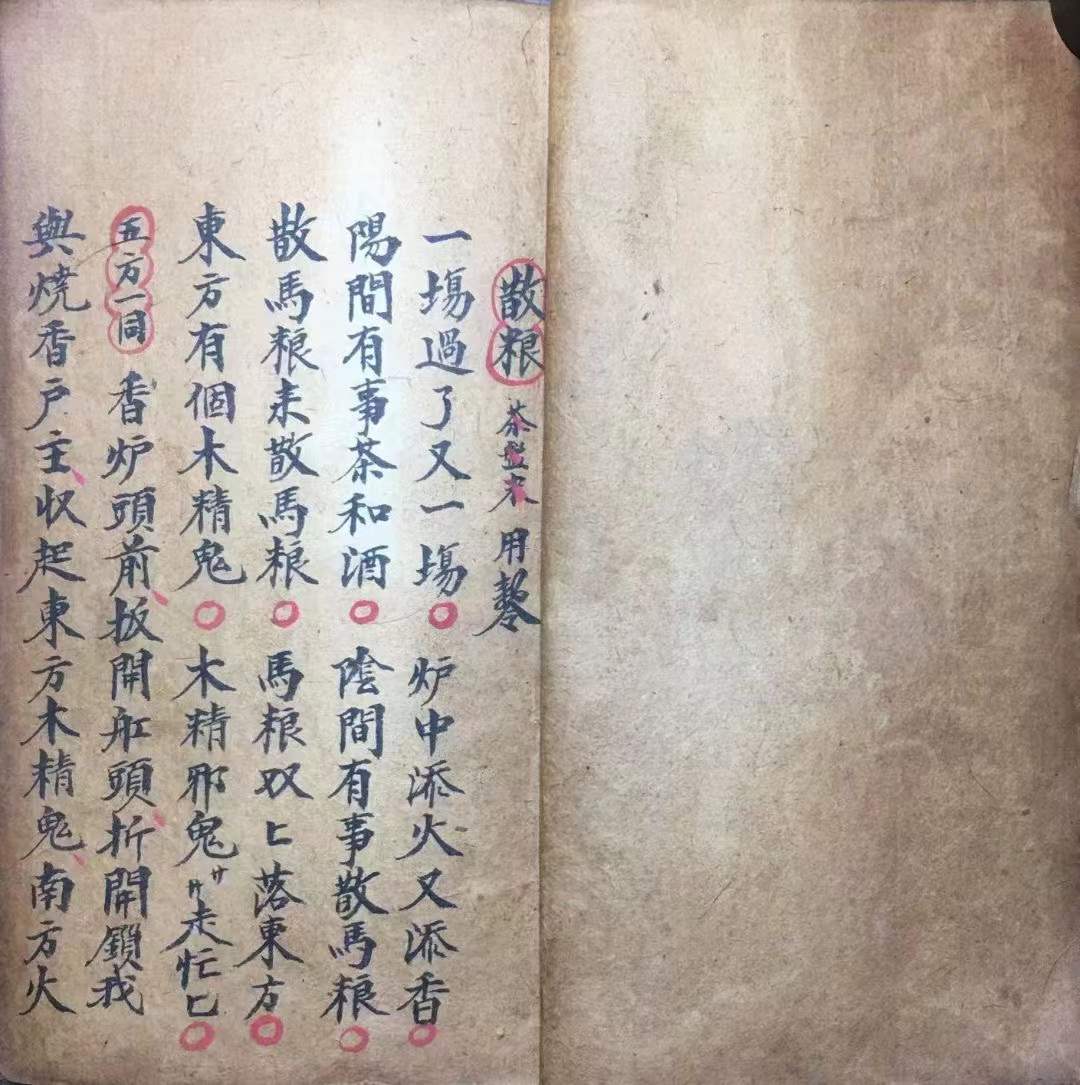 散粮 茶盐米 用
一塲過了又一塲 炉中添火又添香
陽間有事茶和酒 陰間有事散馬粮
散馬粮来散馬粮 馬粮双匕落東方
東方有個木精鬼 木精邪鬼走忙匕
五方一同 香炉頭前扳開舡頭折開鎖我
與燒香户主收起東方木精鬼南方火